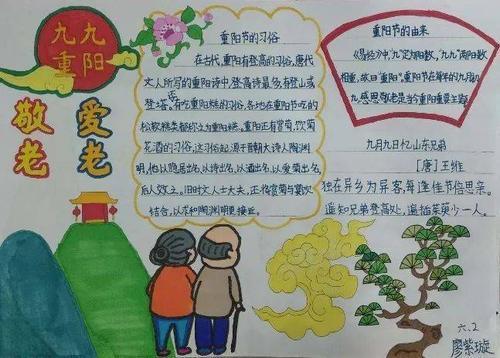 九九
重阳
敬老
爱老
重阳节的习俗
在古代,重阳有登高的习俗,唐代
文人所写的重阳诗中,登高诗最多,有登山或
登塔。还有吃重阳糕的习俗,各地在重阳节吃的
松软糕类都称之为重阳糕。重阳正有赏菊、饮菊
花酒的习俗,这习俗起源于晋朝大诗人陶渊
明,他以隐居出名,以诗出名,以酒出名,以爱菊出名,
后人效之。旧时文人士大夫,还将赏菊与宴饮
结合,以求和陶渊明更接近。
重阳节的由来
《易经》中,“九”定为阳数,“九九”两阳数
相重,故曰“重阳”。重阳节在每年的九月初
九,感恩敬老是当今重阳重要主题
九月九日忆山东兄弟
[唐]王维
独在异乡为异客,每逢佳节倍思亲。
遥知兄弟登高处,遍插茱萸少一人。
六.2
廖紫璇